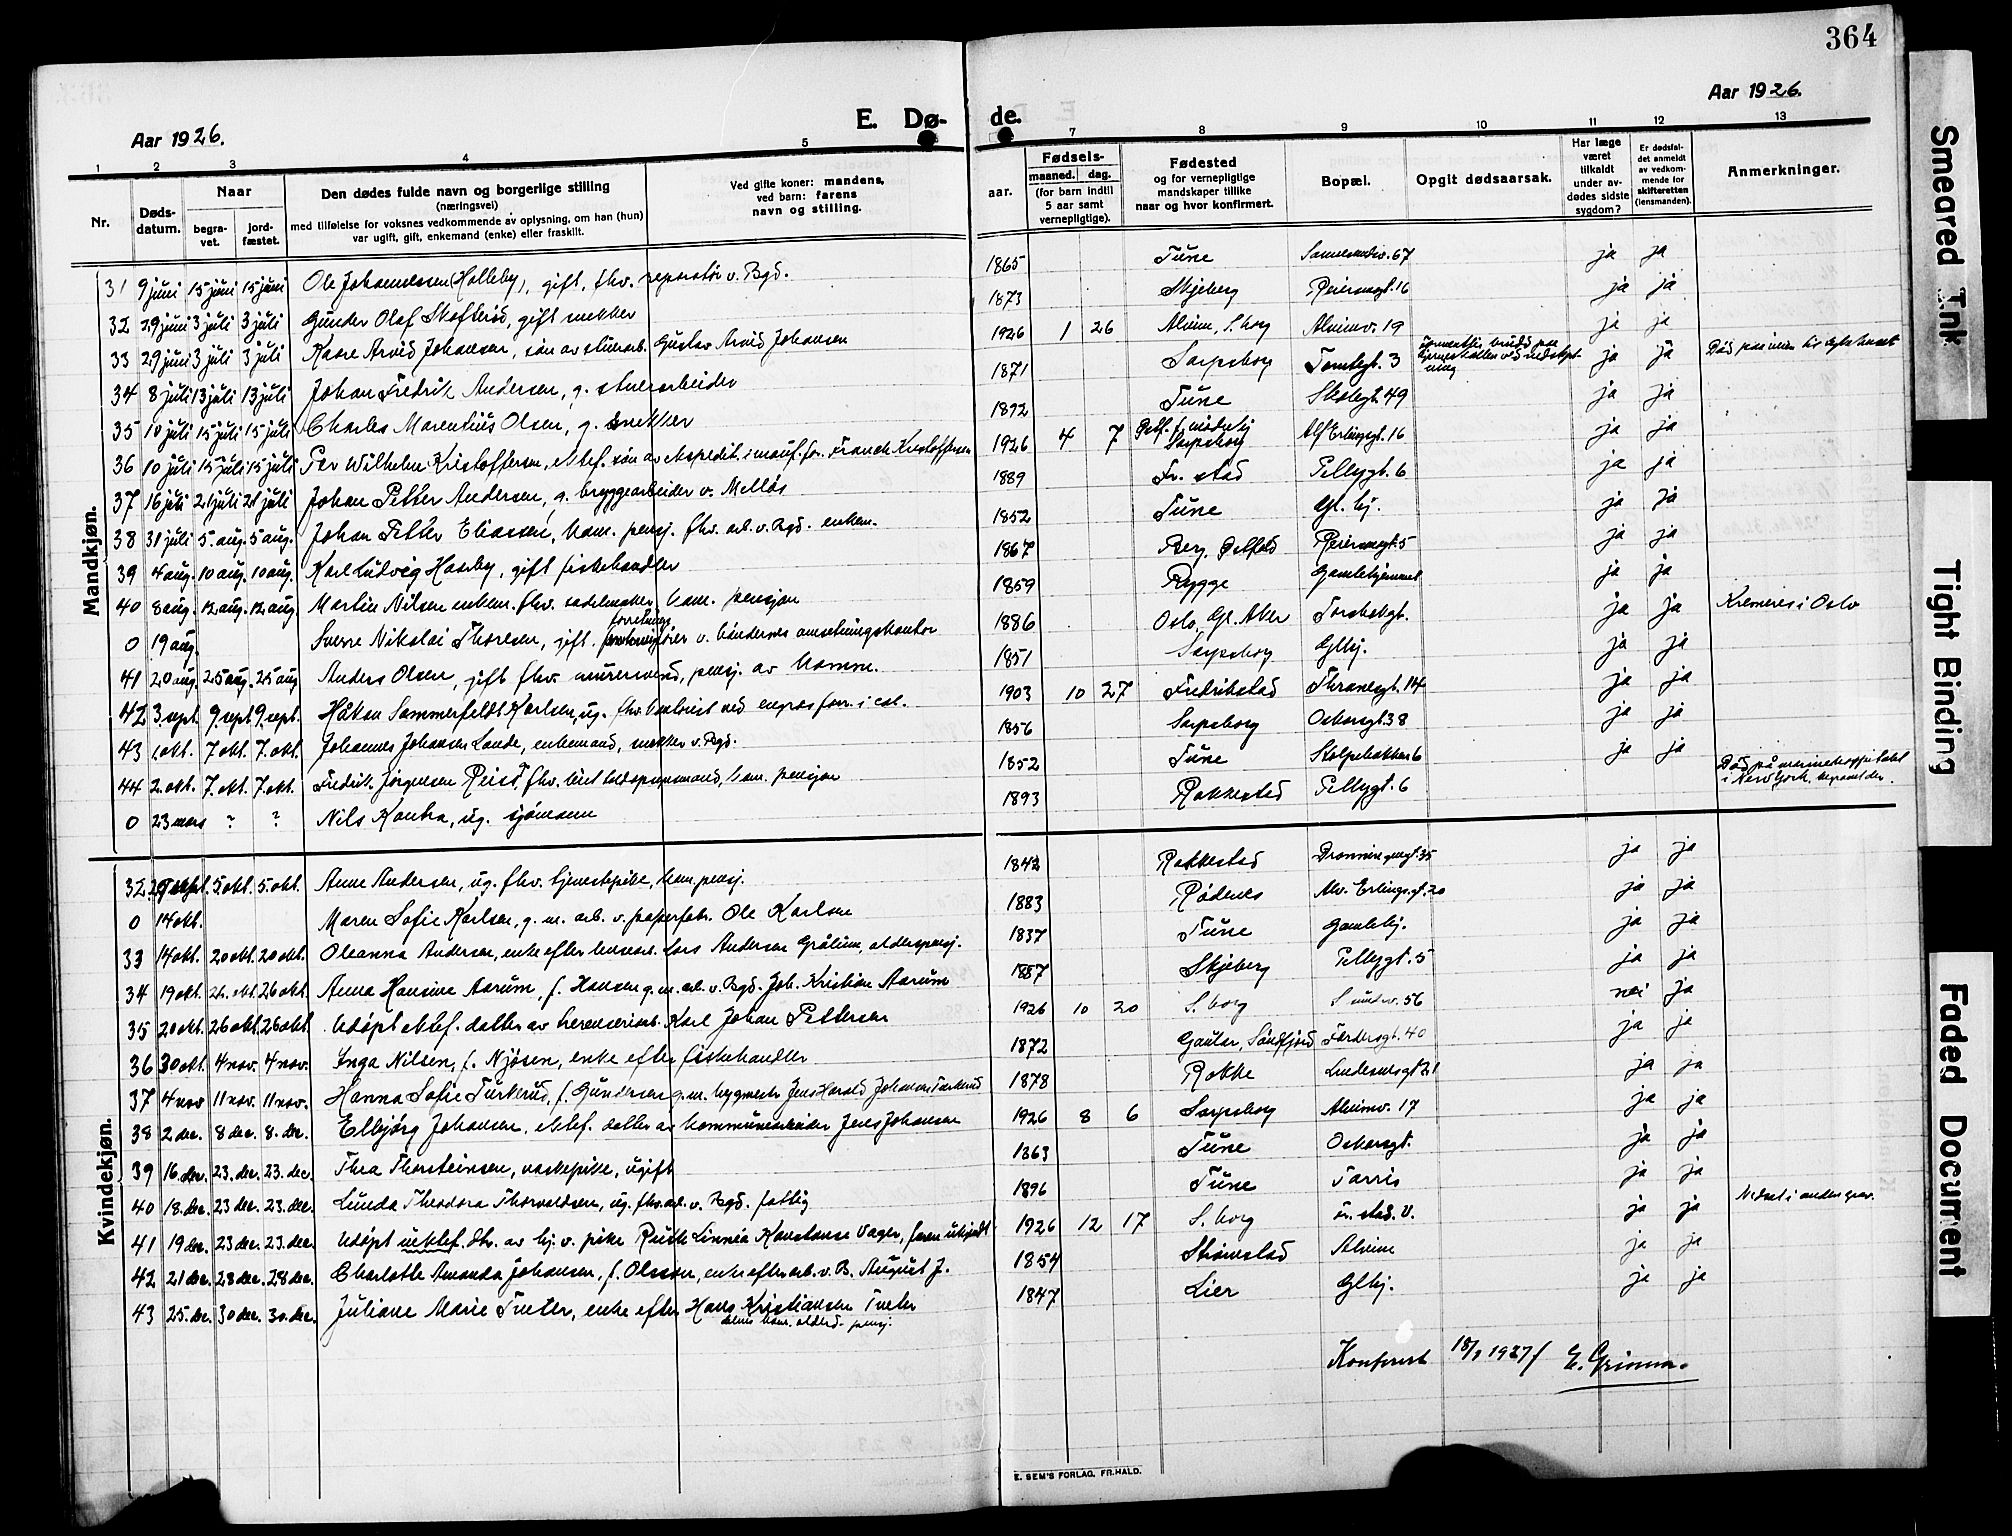 364
Aar 1926.
E. Dø-
de.
Aar 1926.
1 2 3 4 5 7 8 9 10 11 12 13
Nr.
Døds-
datum.
Naar
begra-
vet.
jord-
fæstet.
Den dødes fulde navn og borgerlige stilling
(næringsvei)
med tilføielse for voksnes vedkommende av oplysning, om han (hun)
var ugift, gift, enkemand (enke) eller fraskilt.
Ved gifte koner: mandens,
ved barn: farens
navn og stilling.
Fødsels-
aar.
maaned. dag.
(for barn indtil
5 aar samt
vernepligtige).
Fødested
og for vernepligtige
mandskaper tillike
naar og hvor konfirmert.
Bopæl.
Opgit dødsaarsak.
Har læge
været
tilkaldt
under av-
dødes sidste
sygdom?
Er dødsfal-
det anmeldt
av vedkom-
mende for
skifteretten
(lensmanden).
Anmerkninger.
Mandkjøn.
31 9 juni 15 juni 15 juni Ole Johannessen (Holleby), gift, fhv. reparatør v. Bgd. 1865 Tune 67 ja ja
32 29 juni 3 juli 3 juli Gunder Olaf Skofterød, gift snekker 1873 Skjeberg Reiersgt. 16 ja ja
33 29 juni 3 juli 3 juli Kaare Arvid Johansen, søn av stuerarb. Gustav Arvid Johansen 1926 1 26 Alvim, S.borg Alvimv. 19 ja ja
34 8 juli 13 juli 13 juli Johan Fredrik Andersen, g. stuerarbeider 1871 Sarpsborg Tomtegt. 3 ja ja
35 10 juli 15 juli 15 juli Charles Marentius Olsen, g. snekker 1892 Tune Skolegt. 49 ja ja
36 10 juli 15 juli 15 juli Per Wilhelm Kristoffersen, ektef. søn av ekspedit. i manuf.for. Kristoffersen 1926 4 7 Sarpsborg Alf Erlingsgt. 16 ja ja
37 16 juli 21 juli 21 juli Johan Petter Andersen, g. bryggearbeider v. Melløs 1889 Fr. stad Pellygt. 6 ja ja
38 31 juli 5. aug. 5 aug. Johan Petter Eliassen, kom. pensj. fhv. arb. v. Bgd. enkem. 1852 Tune Gl. hj. ja ja
39 4 aug. 10 aug. 10 aug. Karl Ludvig Haaby, gift fiskehandler 1867 Berg, Østfold Reiersgt. 5 ja ja
40 8 aug. 12 aug. 12 aug. Martin Nilsen enkem. fhv. sadelmaker, kom. pensjon 1859 Rygge Gamlehjemmet ja ja
0 19 aug. Sverre Nikolai Thoresen, gift. forretningsfører v. bøndernes omsetningskontor 1886 Oslo, Gl. Aker Torsbekgt. ja ja Kremeres i Oslo
41 20 aug. 25 aug. 25 aug Anders Olsen, gift fhv. murermand, pensj. av komm. 1851 Sarpsborg Glhj. ja ja
42 3. sept. 9. sept. 9. sept. Håkon Sommerfeldt Karlsen, ug. fhv. kontorist ved engros forr. i col. 1903 10 27 Fredrikstad Thranesgt. 14 ja ja
43 1 okt. 7 okt. 7. okt. Johannes Johansen Lande, enkemand, snekker v. Bgd. 1856 Sarpsborg Oskarsgt. 38 ja ja
44 2. okt. 7. okt. 7. okt. Fredrik Jørgensen fhv. kom. pensjon 1852 Tune Stolpebakken 6 ja ja
0 23 mars ? ? Nils Kantra, ug. sjømann 1893 Rakkestad Pellygt. 6 Død på marinehospitalet
i New York, begravet der.
Kvindekjøn.
32 29 sept. 5 okt. 5. okt. Anne Andersen, ug. fhv. tjenestepike, kom. pensj. 1842 Rakkestad Dronningensgt. 35 ja ja
0 14 okt. Maren Sofie Karlsen, g. m. arb. v. papirfabr. Ole Karlsen 1883 Rødenes Alv. Erlingsgt. 20 ja ja
33 14 okt. 20 okt. 20 okt. Oleanna Andersen, enke efter Lars Andersen Grålum, alderspensj. 1837 Tune Gamlehj. ja ja
34 19 okt. 26. okt. 26 okt. Anna Hansine Aarum, f. Hansen g. m. arb. v. Bgd. Joh. Kristian Aarum 1887 Skjeberg Pellygt. 5 ja ja
35 20 okt. 26 okt. 26 okt. Udøpt ektef. datter av Karl Johan Pettersen 1926 10 20 S. borg Sundv. 56 nei ja
36 30 okt. 4 nov. 4 nov. Inga Nilsen, f. Njøsen, enke efter fiskehandler 1872 Gaular, Søndfjord Fördergt. 40 ja ja
37 4 nov 11 nov. 11 nov. Hanna Sofie Turkerud, f. Gundersen g. m. bygmester Jens Harald Johansen Turkerud 1878 Rokke Lindemsgt. 21 ja ja
38 2 dec. 8 dec. 8. dec. Ellbjørg Johansen, ektef. datter av kommunearbeider Jens Johansen 1926 8 6 Sarpsborg Alvimv. 17 ja ja
39 16 dec. 23. dec. 23. dec. Thea Thorsteinsen, vaskepike, ugift 1863 Tune Oskarsgt. ja ja
40 18. dec. 23 dec. 23. dec. Linda Theodora Thorvaldsen, ug. fhv. arb. v. Bgd. fattig 1896 Tune Tarris ja ja
41 19 dec. 23 dec. 23. dec. Udøpt uektef. dtr. av hj. v. pike Ruth Linnea Konstanse Vager, faren ukjendt 1926 12 17 S. borg Fr. stad. V. ja ja Nedsat i anden grav.
42 21 dec. 28 dec. 28 dec. Charlotte Amanda Johansen, f. Olsson, enke efter arb. v. B. August J. 1854 Strømstad Alvim ja ja
43 25. dec. 30 dec. 30. dec. Juliane Marie Tveter, enke efter Hans Kristiansen Tveter 1847 Lier Glhj. ja ja
Konferert 18/1 1927 E. Grimm.
E. SEM'S FORLAG, FR.HALD.
Smeared Ink
Tight Binding
Faded Document